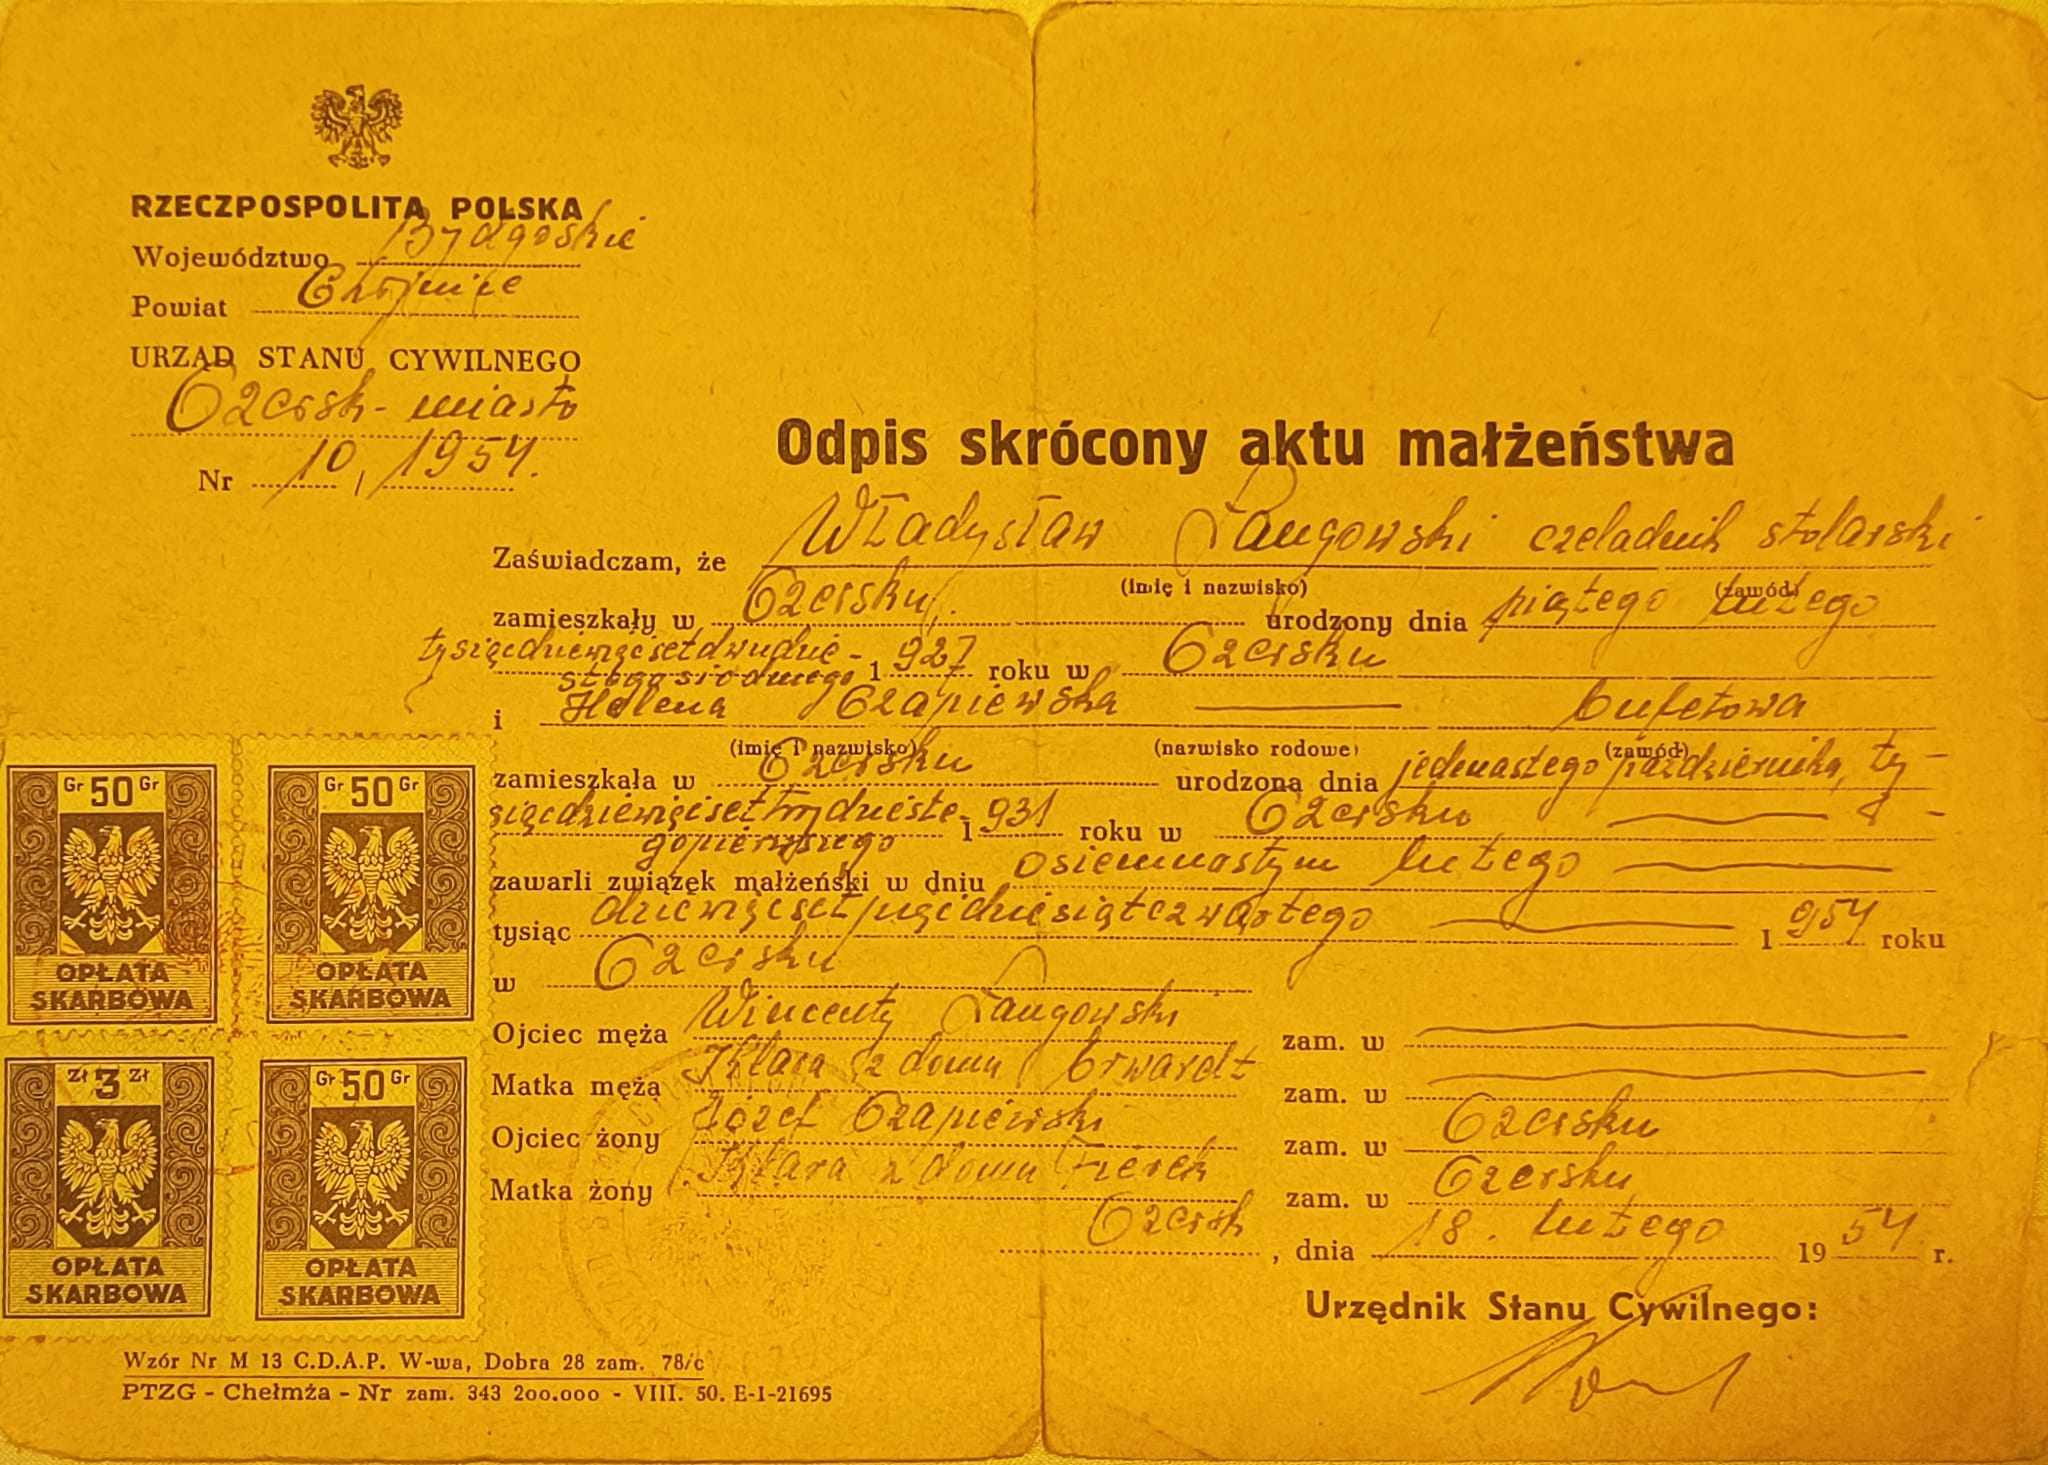 RZECZPOSPOLITA POLSKA
Województwo Bydgoskie
Powiat Chojnice
URZĄD STANU CYWILNEGO
Czersk - miasto
Nr 10 / 1954.
Odpis skrócony aktu małżeństwa
Zaświadczam, że Władysław Langowski czeladnik stolarski
(imię i nazwisko) (zawód)
zamieszkały w Czersku. urodzony dnia piątego lutego
tysiącdziewięćsetdwudzie- 1 927 roku w Czersku
stego siódmego
i Helena Czapiewska bufetowa
(imię i nazwisko) (nazwisko rodowe) (zawód)
zamieszkała w Czersku urodzona dnia jedenastego października, ty-
siącdziewięćsettrzydzieste- 1 931 roku w Czersku
gopierwszego
zawarli związek małżeński w dniu osiemnastym lutego
tysiąc dziewięćset pięćdziesiątczwartego 1 954 roku
w Czersku
Ojciec męża Wincenty Langowski zam. w
Matka męża Klara z domu zam. w
Ojciec żony Józef Czapiewski zam. w Czersku
Matka żony Klara z domu zam. w Czersku
Czersk, dnia 18. lutego 19 54 r.
Urzędnik Stanu Cywilnego:
Gr 50 Gr
OPŁATA
SKARBOWA
Gr 50 Gr
OPŁATA
SKARBOWA
Zł 3 Zł
OPŁATA
SKARBOWA
Gr 50 Gr
OPŁATA
SKARBOWA
Wzór Nr M 13 C.D.A.P. W-wa, Dobra 28 zam. 78/c
PTZG - Chełmża - Nr zam. 343 200.000 - VIII. 50. E-1-21695